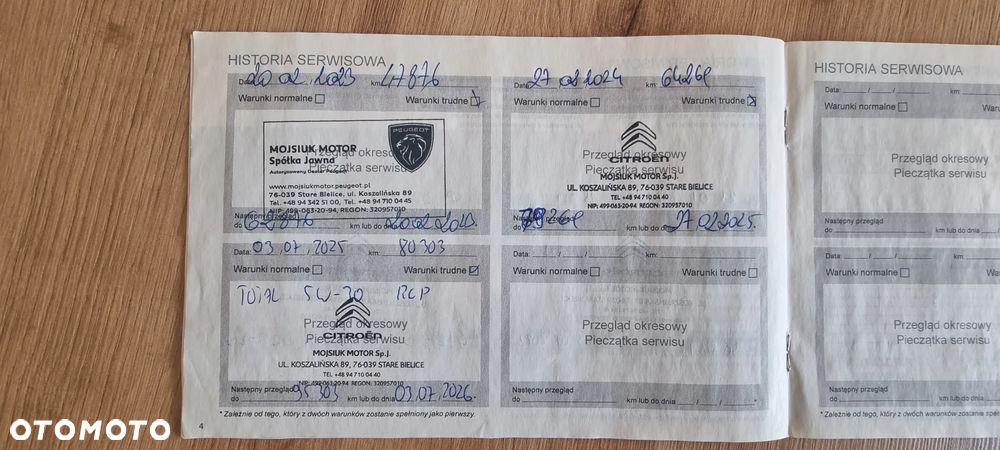 HISTORIA SERWISOWA
Data: 20 02 2023 km: 47876
Warunki normalne Warunki trudne
PEUGEOT
MOJSIUK MOTOR
Spółka Jawna
Autoryzowany Dealer Peugeot
Przegląd okresowy
Pieczątka serwisu
www.mojsiukmotor.peugeot.pl
76-039 Stare Bielice, ul. Koszalińska 89
Tel. +48 94 342 51 00, Tel. +48 94 710 04 45
NIP: 499-063-20-94, REGON: 320957010
Następny przegląd
do 62876 km lub do dnia
Data: 27 02 2024 km:
Warunki normalne Warunki trudne
CITROËN
Przegląd okresowy
Pieczątka serwisu
MOJSIUK MOTOR Sp.j.
UL. KOSZALIŃSKA 89, 76-039 STARE BIELICE
TEL +48 94 710 04 40
NIP: 499-063-20-94 REGON: 320957010
Następny przegląd
do km lub do dnia 27 02 2025.
Data: 03.07.2025 km: 80303
Warunki normalne Warunki trudne
TOTAL 5W-30 RCP
CITROËN
Przegląd okresowy
Pieczątka serwisu
MOJSIUK MOTOR Sp.j.
UL. KOSZALIŃSKA 89, 76-039 STARE BIELICE
TEL +48 94 710 04 40
NIP: 499-063-20-94 REGON: 320957010
Następny przegląd
do 95303 km lub do dnia 03.07.2026.
Data: / / km:
Warunki normalne Warunki trudne
Przegląd okresowy
Pieczątka serwisu
Następny przegląd
do km lub do dnia / / *
* Zależnie od tego, który z dwóch warunków zostanie spełniony jako pierwszy.
4
HISTORIA SERWISOWA
Data: / / km:
Warunki normalne
Przegląd okresowy
Pieczątka serwisu
Następny przegląd
do km lub do dnia
Data: / / km:
Warunki normalne
Przegląd okresowy
Pieczątka serwisu
Następny przegląd
do km lub do dnia
* Zależnie od tego, który z dwóch warunków zostanie spełniony
OTOMOTO